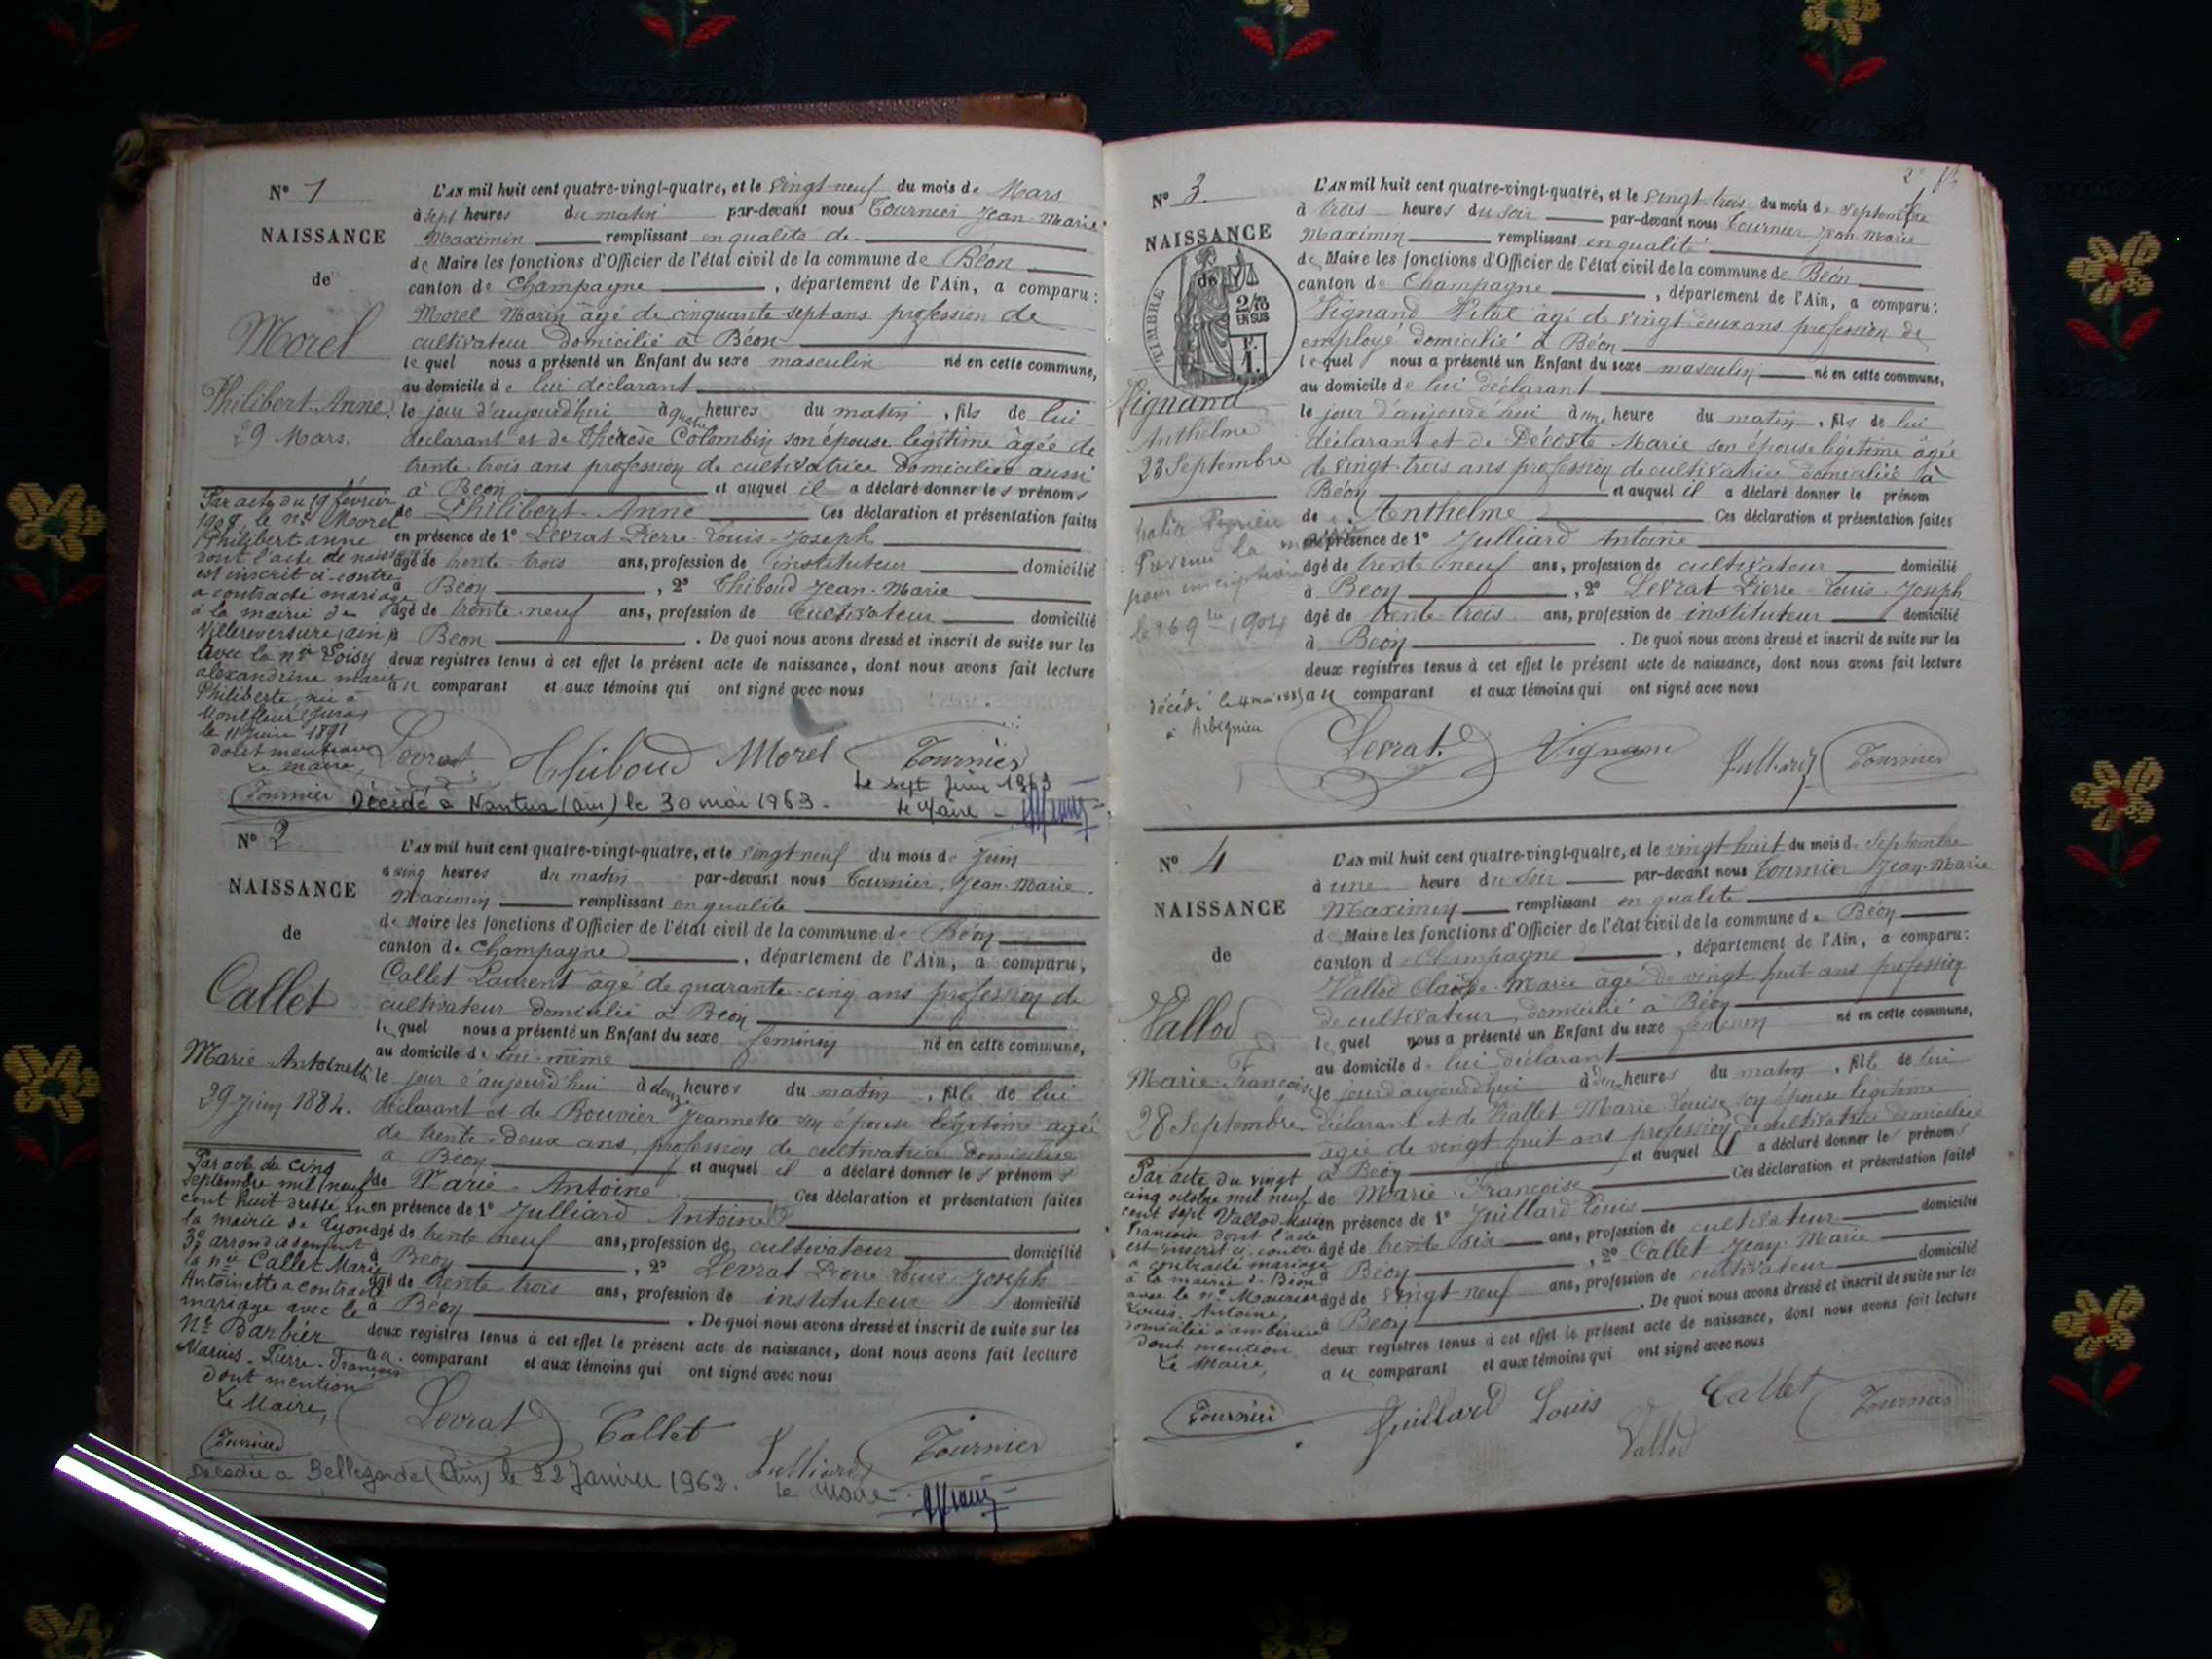 N° 1
NAISSANCE
de
Morel
Philibert-Anne
29 Mars.
L'AN mil huit cent quatre-vingt-quatre, et le vingt-neuf du mois de Mars
à sept heures du matin par-devant nous Tournier Jean-Marie
Maximin remplissant en qualité de
de Maire les fonctions d'Officier de l'état civil de la commune de Béon
canton de Champagne, département de l'Ain, a comparu:
Morel Marin âgé de cinquante sept ans profession de
cultivateur domicilié à Béon
lequel nous a présenté un Enfant du sexe masculin né en cette commune,
au domicile de lui déclarant
le jour d'aujourd'hui à quatre heures du matin, fils de lui
déclarant et de Thérèse Colombin son épouse légitime âgée de
trente-trois ans profession de cultivatrice domiciliée aussi
à Béon et auquel il a déclaré donner les prénoms
de Philibert-Anne Ces déclaration et présentation faites
en présence de 1° Levrat Pierre-Louis-Joseph
âgé de trente-trois ans, profession de instituteur domicilié
à Béon, 2° Thiboud Jean-Marie
âgé de trente-neuf ans, profession de Cultivateur domicilié
à Béon. De quoi nous avons dressé et inscrit de suite sur les
deux registres tenus à cet effet le présent acte de naissance, dont nous avons fait lecture
au comparant et aux témoins qui ont signé avec nous
Par acte du 19 février
1908, le né Morel
Philibert Anne
dont l'acte de naissance
est inscrit ci-contre
a contracté mariage
à la mairie de
Villereversure (ain)
avec la née Loisy
alexandrine marie
Philiberte, née à
Montfleur (Jura)
le 11 Juin 1891
dont mention
Le maire,
Tournier
Levrat Thiboud Morel Tournier
Décédé à Nantua (Ain) le 30 mai 1963.
Le sept juin 1963
Le Maire
N° 2
NAISSANCE
de
Callet
Marie Antoinette
29 Juin 1884.
L'AN mil huit cent quatre-vingt-quatre, et le vingt neuf du mois de Juin
à cinq heures du matin par-devant nous Tournier, Jean-Marie
Maximin remplissant en qualité
de Maire les fonctions d'Officier de l'état civil de la commune de Béon
canton de Champagne, département de l'Ain, a comparu,
Callet Laurent âgé de quarante-cinq ans profession de
cultivateur domicilié à Béon
lequel nous a présenté un Enfant du sexe féminin né en cette commune,
au domicile de lui-même
le jour d'aujourd'hui à deux heures du matin, fille de lui
déclarant et de Bouvier Jeannette son épouse légitime âgée
de trente-deux ans, profession de cultivatrice domiciliée
à Béon et auquel il a déclaré donner les prénoms
de Marie-Antoine Ces déclaration et présentation faites
en présence de 1° Julliard Antoine
âgé de trente neuf ans, profession de cultivateur domicilié
à Béon, 2° Levrat Pierre Louis Joseph
âgé de trente trois ans, profession de instituteur domicilié
à Béon. De quoi nous avons dressé et inscrit de suite sur les
deux registres tenus à cet effet le présent acte de naissance, dont nous avons fait lecture
au comparant et aux témoins qui ont signé avec nous
Par acte du cinq
septembre mil neuf
cent huit dressé en
la mairie de Lyon
3e arrondissement
la née Callet Marie
Antoinette a contracté
mariage avec le
né Barbier
Marius-Pierre-François
dont mention
Le Maire,
Tournier
Levrat Callet Julliard Tournier
Décédée à Bellegarde (Ain) le 22 Janvier 1962.
Le Maire
N° 3
NAISSANCE
de
TIMBRE
2/10
EN SUS
F.
1.
Vignand
Anthelme
23 Septembre
L'AN mil huit cent quatre-vingt-quatre, et le vingt-trois du mois de Septembre
à trois heures du soir par-devant nous Tournier Jean-Marie
Maximin remplissant en qualité
de Maire les fonctions d'Officier de l'état civil de la commune de Béon
canton de Champagne, département de l'Ain, a comparu:
Vignand Vital âgé de vingt-deux ans profession de
employé domicilié à Béon
lequel nous a présenté un Enfant du sexe masculin né en cette commune,
au domicile de lui déclarant
le jour d'aujourd'hui à une heure du matin, fils de lui
déclarant et de Décoste Marie son épouse légitime âgée
de vingt-trois ans profession de cultivatrice domiciliée à
Béon et auquel il a déclaré donner le prénom
de Anthelme Ces déclaration et présentation faites
en présence de 1° Julliard Antoine
âgé de trente neuf ans, profession de cultivateur domicilié
à Béon, 2° Levrat Pierre-Louis-Joseph
âgé de trente trois ans, profession de instituteur domicilié
à Béon. De quoi nous avons dressé et inscrit de suite sur les
deux registres tenus à cet effet le présent acte de naissance, dont nous avons fait lecture
au comparant et aux témoins qui ont signé avec nous
pour inscription
1904
décédé le 4 mai
à Arbignieu
Levrat Vignand Julliard Tournier
N° 4
NAISSANCE
de
Vallod
Marie-Françoise
28 Septembre
L'AN mil huit cent quatre-vingt-quatre, et le vingt-huit du mois de Septembre
à une heure du soir par-devant nous Tournier Jean-Marie
Maximin remplissant en qualité
de Maire les fonctions d'Officier de l'état civil de la commune de Béon
canton de Champagne, département de l'Ain, a comparu:
Vallod Claude-Marie âgé de vingt huit ans profession
de cultivateur, domicilié à Béon
lequel nous a présenté un Enfant du sexe féminin né en cette commune,
au domicile de lui déclarant
le jour d'aujourd'hui à deux heures du matin, fille de lui
déclarant et de Vallet Marie-Louise son épouse légitime
âgée de vingt huit ans profession de cultivatrice domiciliée
à Béon et auquel il a déclaré donner les prénoms
de Marie-Françoise Ces déclaration et présentation faites
en présence de 1° Juillard Louis
âgé de trente six ans, profession de cultivateur domicilié
à Béon, 2° Callet Jean-Marie
âgé de vingt-neuf ans, profession de cultivateur domicilié
à Béon. De quoi nous avons dressé et inscrit de suite sur les
deux registres tenus à cet effet le présent acte de naissance, dont nous avons fait lecture
au comparant et aux témoins qui ont signé avec nous
Par acte du vingt
cinq octobre mil neuf
cent sept Vallod Marie
Françoise dont l'acte
est inscrit ci-contre
a contracté mariage
à la mairie de Béon
avec le né Maurier
Louis, Antoine,
domicilié à ambérieu
dont mention
Le Maire,
Tournier
Juillard Louis Callet Tournier
Vallod